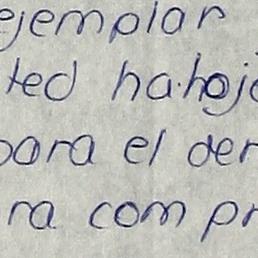 ejemplar
ted ha hoj
para el der
ra com pr